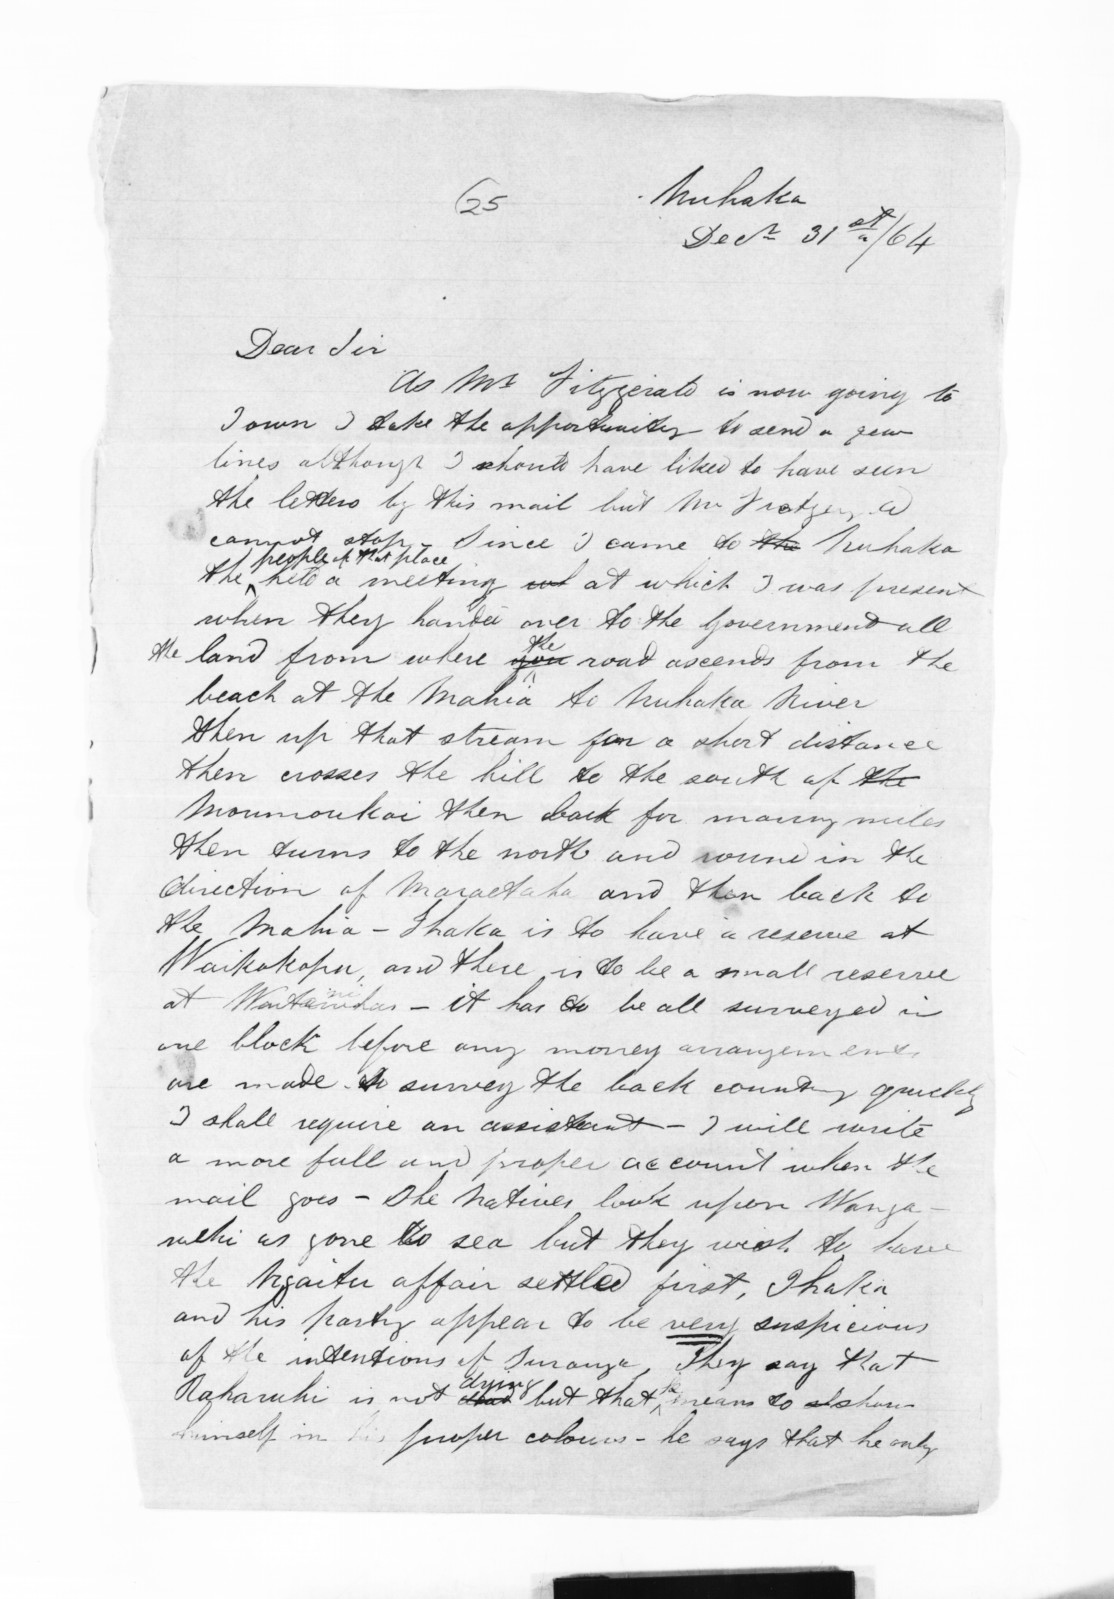 25
Nuhaka
Decr 31st/64
Dear Sir
As Mr Fitzgerald is now going to
Town I take the opportunity to send a few
lines although I should have liked to have seen
the letters by this mail but Mr Fitzgerald
cannot stop - Since I came to the Nuhaka
the people of that place held a meeting at which I was present
when they handed over to the Government all
the land from where you the road ascends from the
beach at the Mahia to Nuhaka River
then up that stream for a short distance
then crosses the hill to the south of the
Moumoukai then back for many miles
then turns to the north and round in the
direction of Maraetaha and then back to
the Mahia - Ihaka is to have a reserve at
Waikokopu, and there is to be a small reserve
at - it has to be all surveyed in
one block before any money arrangements
are made to survey the back country quickly
I shall require an assistant - I will write
a more full and proper account when the
mail goes - The Natives look upon Wanga-
wehi as gone to sea but they wish to have
the Ngaitu affair settled first, Ihaka
and his party appear to be very suspicious
of the intentions of Turanga, They say that
Raharuhi is not dying but that he means to show
himself in his proper colours - he says that he only